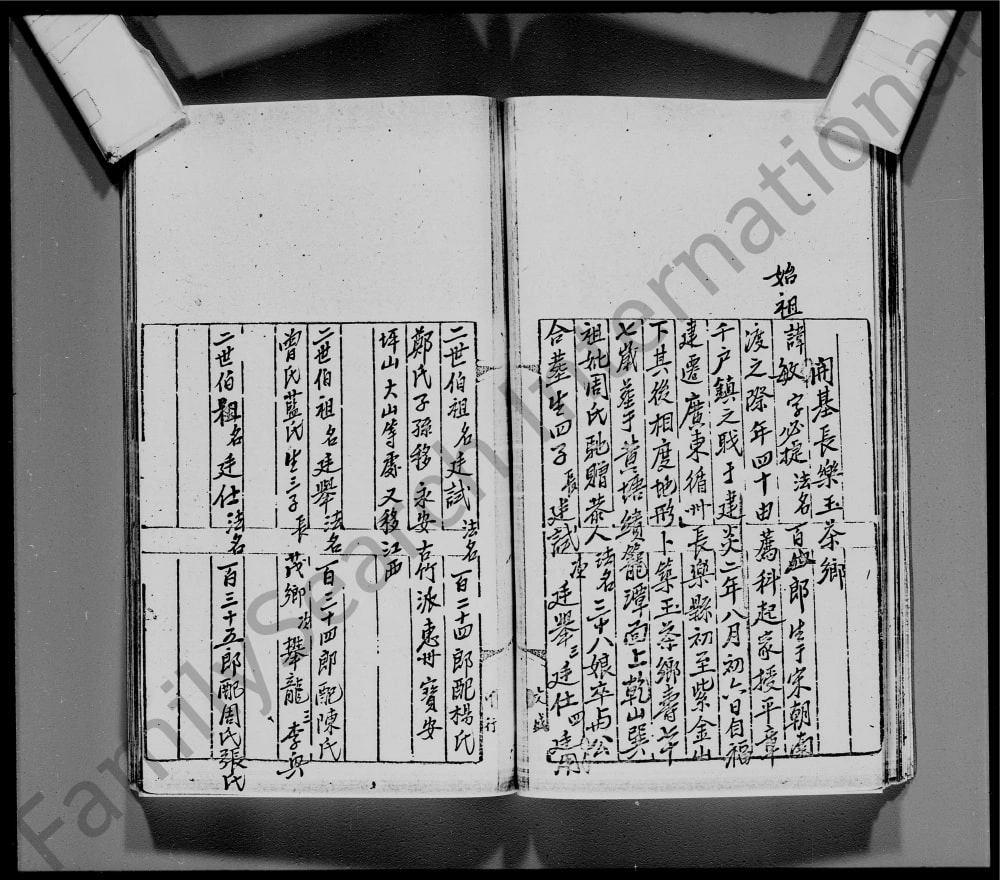 開基長樂玉茶鄉
始祖諱敏字必提法名百郎生于宋朝南
渡之際年四十由薦科起家授平章
千户鎮之職于建炎二年八月初六日自福
建遷廣東循州長樂縣初至紫金山
下其後相度地形卜築玉茶鄉壽七十
七歲葬于黃塘績籠潭面上乾山巽
祖妣周氏馳贈恭人法名三十八娘卒與公
合葬生四子長廷試次廷舉三廷仕四廷用
二世伯祖名廷試法名百二十四郎配楊氏
鄭氏子孫移永安古竹派惠州寶安
坪山大山等處又移江西
二世伯祖名廷舉法名百三十四郎配陳氏
曾氏藍氏生三子長茂鄉次攀龍三李與
二世伯祖名廷仕法名百三十五郎配周氏張氏
FamilySearch International